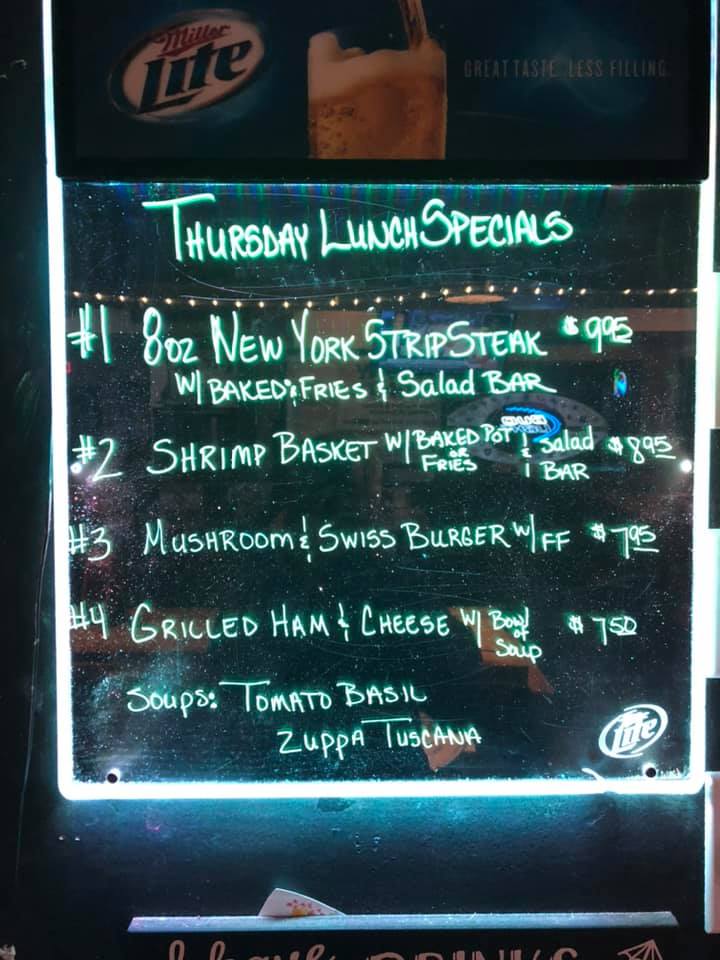 Miller
Lite
GREAT TASTE. LESS FILLING.
THURSDAY LUNCH SPECIALS
#1 8oz NEW YORK STRIP STEAK $9.95
W/ BAKED & FRIES & Salad BAR
#2 SHRIMP BASKET W/ BAKED POT OR FRIES & Salad BAR $8.95
#3 MUSHROOM & SWISS BURGER W/ FF $7.95
#4 GRILLED HAM & CHEESE W/ Bowl of Soup $7.50
Soups: TOMATO BASIL
ZUPPA TUSCANA
Lite
DRINKS